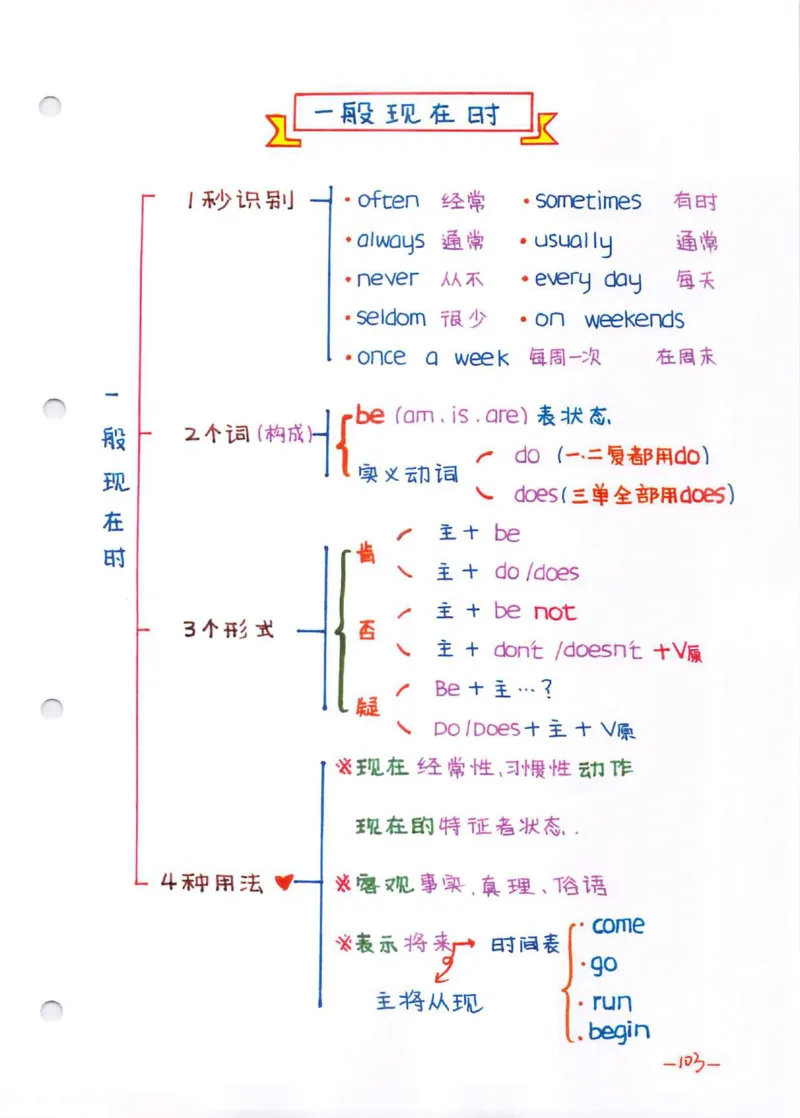 一般现在时
1秒识别
• often 经常 • sometimes 有时
• always 通常 • usually 通常
• never 从不 • every day 每天
• seldom 很少 • on weekends
• once a week 每周一次 在周末
一般现在时
2个词(构成)
be (am.is.are)表状态
实义动词
do (一.二复都用do)
does(三单全部用does)
3个形式
肯
主+ be
主+ do/does
否
主+ be not
主+ don't/doesn't +V原
疑
Be+主…?
Do/Does+主+V原
4种用法
※现在经常性、习惯性动作
现在的特征者状态.
※客观事实、真理、俗语
※表示将来 时间表
主将从现
• come
• go
• run
• begin
—103—